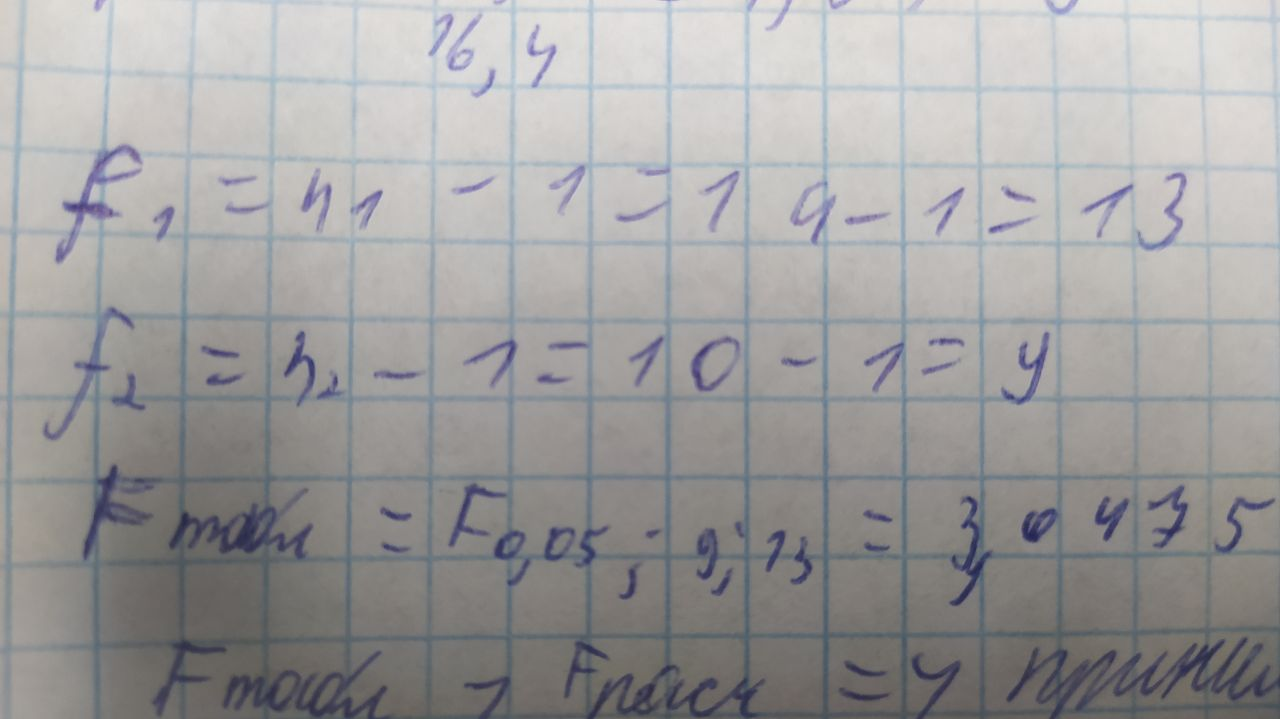 16,4
f₁ = n₁ - 1 = 14 - 1 = 13
f₂ = n₂ - 1 = 10 - 1 = 9
Fтабл = F0,05; 9; 13 = 3,0475
Fтабл > Fрасч =>